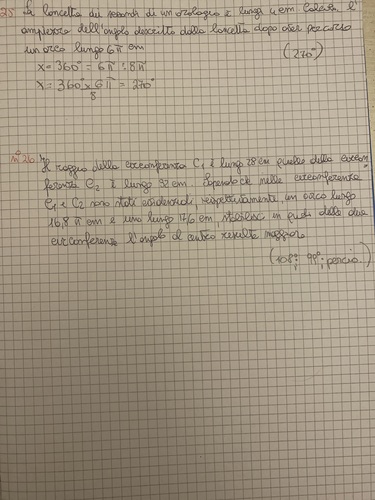 25 La lancetta dei secondi di un orologio è lunga 4 cm Calcola l'
ampiezza dell'angolo descritto dalla lancetta dopo aver percorso
un arco lungo 6π cm
(270°)
x = 360° = 6π : 8π
x = 360° × 6π = 270°
8
N°26 Il raggio della circonferenza C1 è lungo 28 cm quello della circon
ferenza C2 è lungo 32 cm. Sapendo che nelle circonferenze
C1 e C2 sono stati considerati, rispettivamente, un arco lungo
16,8 π cm e uno lungo 17,6 cm stabilisci in quale delle due
circonferenze l'angolo al centro risulta maggiore
(108°; 99°;